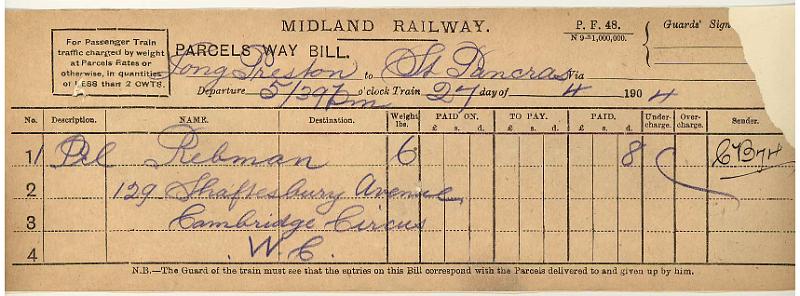 MIDLAND RAILWAY.
P. F. 48.
N 9—1,000,000.
Guards' Sign
For Passenger Train
traffic charged by weight
at Parcels Rates or
otherwise, in quantities
of LESS than 2 CWTS.
PARCELS WAY BILL.
Long Preston to St Pancras Via
Departure 5/39pm o'clock Train 27 day of 4 1904
No. Description. NAME. Destination. Weight lbs. PAID ON. £ s. d. TO PAY. £ s. d. PAID. £ s. d. Under-charge. Over-charge. Sender.
1/ Pcl Rebman 6 8
2 129 Shaftesbury Avenue
3 Cambridge Circus
4 W. C.
N.B.—The Guard of the train must see that the entries on this Bill correspond with the Parcels delivered to and given up by him.